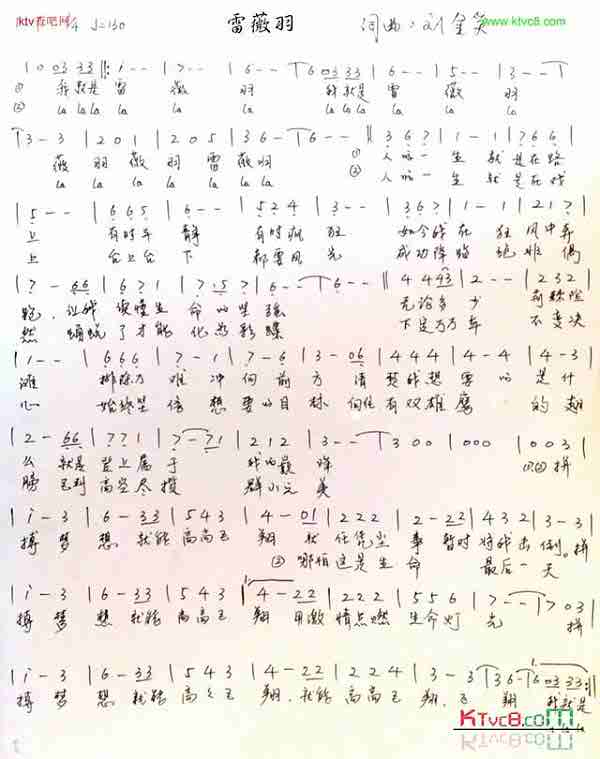 ktv在吧网 /4 J=130 雷薇羽 词曲:刘金笑 www.ktvc8.com
| 0 03 33 ‖: i - - | 7 - - | 6 - - | 6 03 33 | 6 - - | 5 - - | 3 - - |
① 我就是 雷 薇 羽 我就是 雷 薇 羽
② la la la la la la la la la la la la
| 3 - 3 | 2 0 1 | 2 0 5 | 3 6 - | 6 - - ‖ 3 6 7 | 1 - 1 | 7 6 6 |
薇 羽 薇 羽 雷 薇 羽 ① 人的一 生 就 是在路
la la la la la la la ② 人的一 生 就 是在戏
| 5 - - | 6 6 5 | 6 - - | 5 2 4 | 3 - - | 3 6 7 | 1 - 1 | 2 1 7 |
上 有时平 静 有时疯 狂 如今我 在 狂 风中奔
上 台上台 下 都要风 光 成功降临 绝 非 偶
| 7 - 66 | 6 1 6 | 1 - 1 | 7 . 5 7 | 6 - - | 6 - - ‖ 4 4 43 | 2 - - | 2 3 2 |
跑, 让我 读懂生 命 的 坚 强 无论多 少
然 蝴蝶 了才能 化 为 彩 蝶 下定万 不 变 决
| 1 - - | 6 6 6 | 7 - 1 | 7 - 6 | 3 - 06 | 4 4 4 | 4 - 4 | 4 - 3 |
滩 排除万 难 冲 向 前 方 清 楚我想 要 的 是 什
心 始终坚 信 想 要 的 目 标 向往 有双雄 鹰 的 翅
| 2 - 66 | 7 7 1 | 7 - 7 1 | 2 1 2 | 3 - - | 3 0 0 | 0 0 0 | 0 0 3 |
么 就是 登上属 于 我的最 ①② 拼
膀 飞到 高空尽 揽 群小完 美
| i - 3 | 6 - 33 | 5 4 3 | 4 - 01 | 2 2 2 | 2 - 22 | 4 3 2 | 3 - 3 |
搏 梦 想 就能 高高飞 翔 就 任凭尘 事 暂时 将我击 倒。拼
② 哪怕这是生 命 最后一 天
| i - 3 | 6 - 33 | 5 4 3 | 4 - 22 | 2 2 2 | 5 5 6 | 7 - - | 7 0 3 |
搏 梦 想 就能 高高飞 翔 用激 情点燃 生命灯 光 拼
| i - 3 | 6 - 33 | 5 4 3 | 4 - 22 | 2 2 4 | 3 - 3 | 3 6 - | 6 03 33 :‖
搏 梦 想 就能 高高飞 翔, 就能 高高飞 翔, 飞 翔 我就是
KTvc8.com
la la la